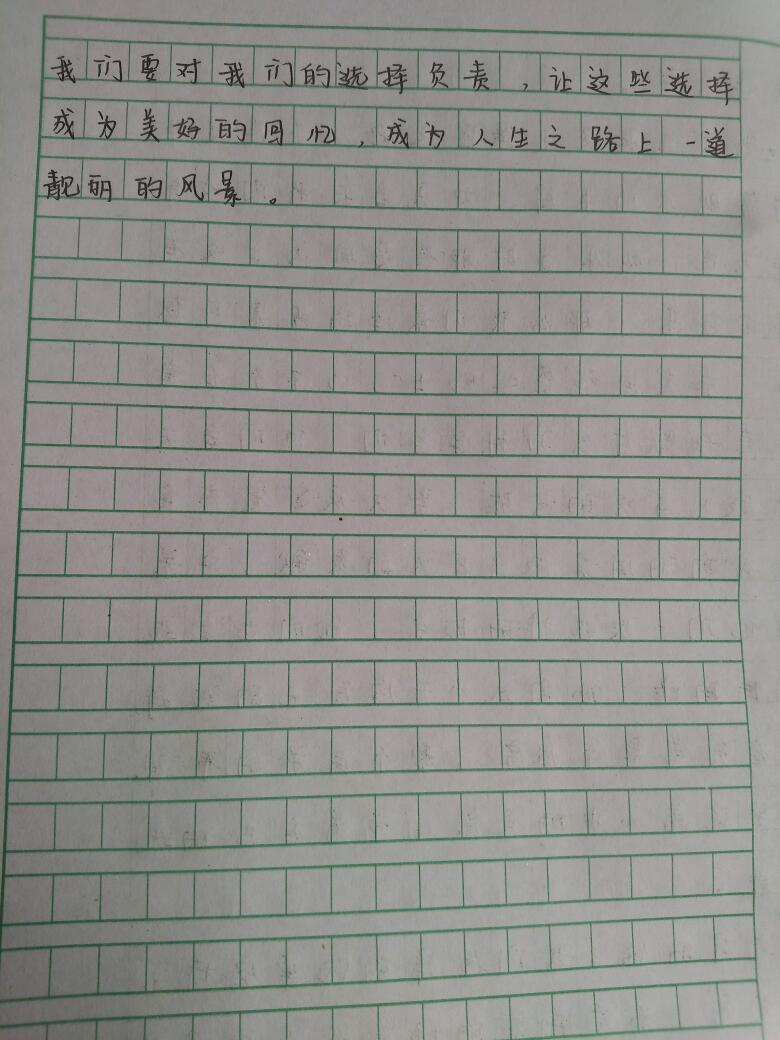 我们要对我们的选择负责，让这些选择
成为美好的回忆，成为人生之路上一道
靓丽的风景。